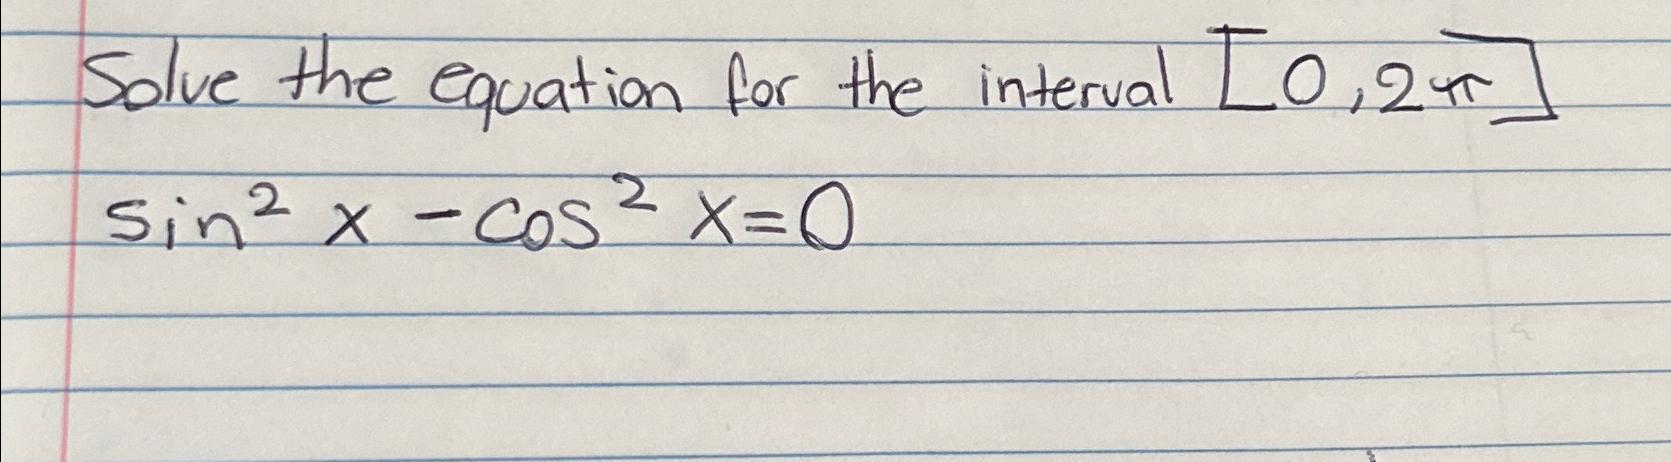 Solve the equation for the interval [0, 2π]
sin² x - cos² x = 0